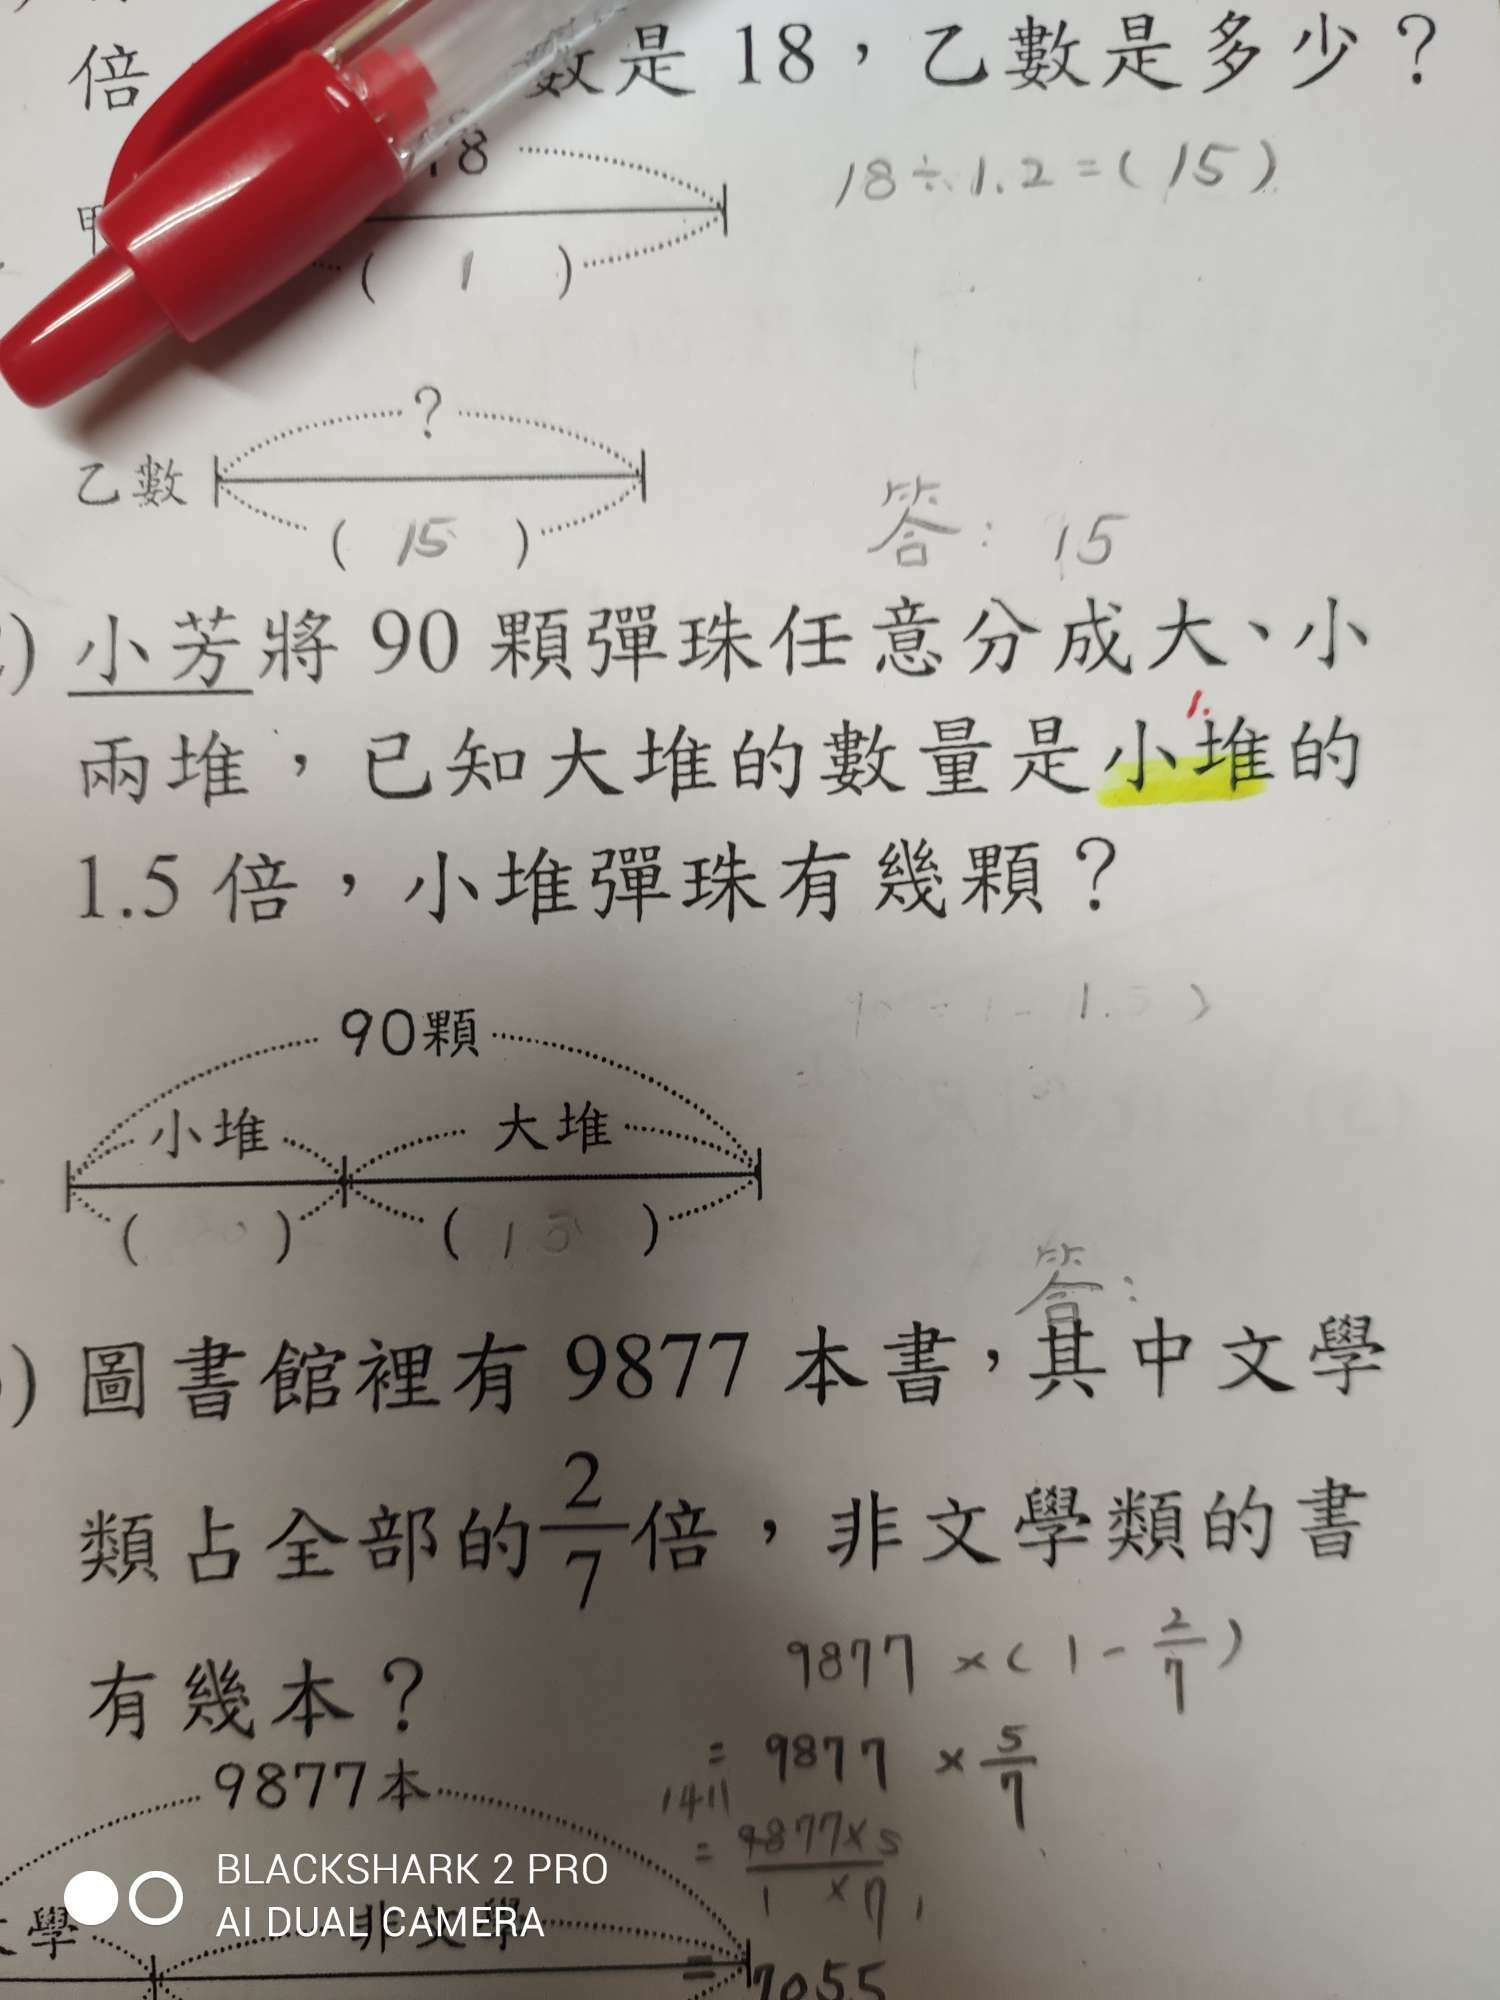 倍 數是 18，乙數是多少？
18
18÷1.2=(15)
( 1 )
？
乙數
( 15 )
答：15
) 小芳將 90 顆彈珠任意分成大、小
1.
兩堆，已知大堆的數量是小堆的
1.5 倍，小堆彈珠有幾顆？
90顆
小堆 大堆
( ) ( 1.5 )
答：
) 圖書館裡有 9877 本書，其中文學
類占全部的2/7倍，非文學類的書
有幾本？
9877 ×(1-2/7)
= 9877 × 5/7
1411
= 9877×5/1×7
1
= 7055
9877本
學 非文學
BLACKSHARK 2 PRO
AI DUAL CAMERA